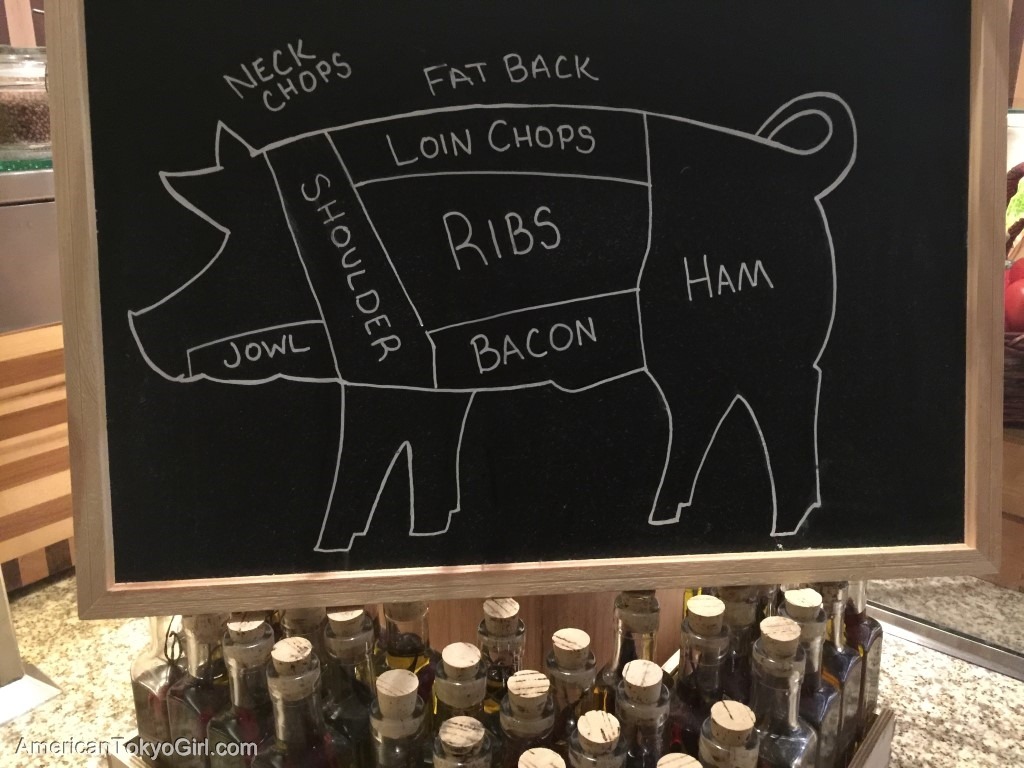 NECK
CHOPS
FAT BACK
LOIN CHOPS
SHOULDER
RIBS
HAM
JOWL
BACON
AmericanTokyoGirl.com